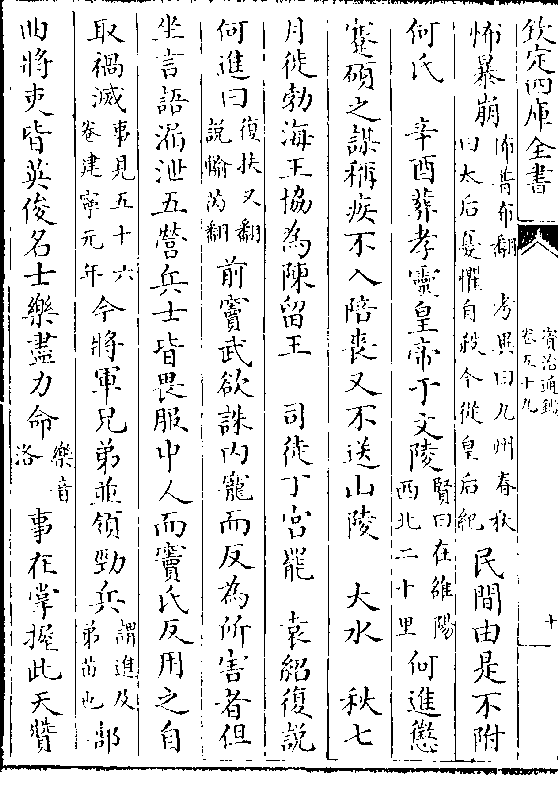 欽定四庫全書
資治通鑑
卷五十九
十
怖暴崩怖普布翻 考異曰九州春秋曰太后憂懼自殺今從皇后紀民間由是不附
何氏 辛酉葬孝靈皇帝于文陵賢曰在雒陽西北二十里何進懲
蹇碩之謀稱疾不入陪喪又不送山陵 大水 秋七
月徙勃海王協為陳留王 司徒丁宮罷 袁紹復說
何進曰復扶又翻說輸芮翻前竇武欲誅内寵而反為所害者但
坐言語漏泄五營兵士皆畏服中人而竇氏反用之自
取禍滅事見五十六卷建寧元年今將軍兄弟並領勁兵謂進及弟苗也部
曲將吏皆英俊名士樂盡力命樂音洛事在掌握此天贊